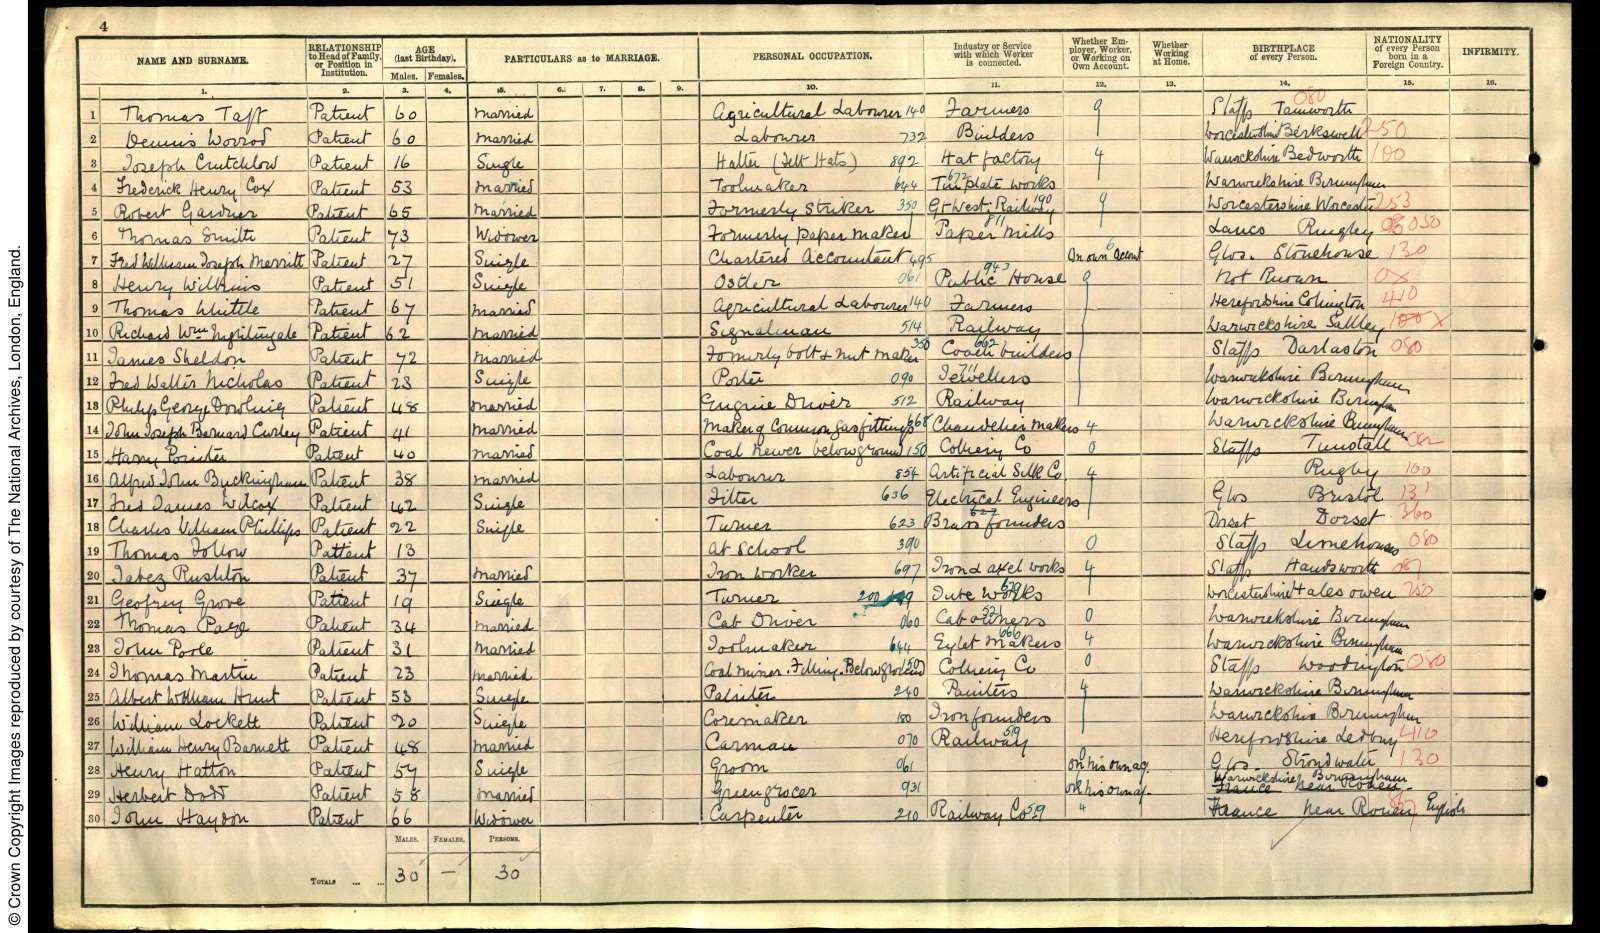 4
NAME AND SURNAME. RELATIONSHIP to Head of Family, or Position in Institution. AGE (last Birthday). Males. Females. PARTICULARS as to MARRIAGE. PERSONAL OCCUPATION. Industry or Service with which Worker is connected. Whether Employer, Worker, or Working on Own Account. Whether Working at Home. BIRTHPLACE of every Person. NATIONALITY of every Person born in a Foreign Country. INFIRMITY.
1. 2. 3. 4. 5. 6. 7. 8. 9. 10. 11. 12. 13. 14. 15. 16.
1 Thomas Taft Patient 60 Married Agricultural Labourer 140 Farmers 9 Staffs Tamworth 080
2 Dennis Patient 60 Married Labourer 732 Builders Worcestershire Berkswell 250
3 Joseph Crutchlow Patient 16 Single Hatter (Felt Hats) 892 Hat factory 4 Warwickshire Bedworth 100
4 Frederick Henry Cox Patient 53 Married Toolmaker 644 Tinplate works 672 Warwickshire Birmingham
5 Robert Gardner Patient 65 Married Formerly Striker 350 Gt West: Railway 190 9 Worcestershire Worcester 253
6 Thomas Smith Patient 73 Widower Formerly paper maker Paper Mills 811 Lancs Rugley 050
7 Fred William Joseph Merritt Patient 27 Single Chartered Accountant 495 On own account 6 Glos. Stonehouse 130
8 Henry Wilkins Patient 51 Single Ostler 061 Public House 943 9 Not Known 0x
9 Thomas Whittle Patient 67 Married Agricultural Labourer 140 Farmers Herefordshire 410
10 Richard Wm Nightingale Patient 62 Married Signalman 514 Railway Warwickshire Saltley 100 x
11 James Sheldon Patient 72 Married Formerly bolt & nut maker 350 Coach builders 662 Staffs Darlaston 080
12 Fred Walter Nicholas Patient 23 Single Porter 090 Jewellers 711 Warwickshire Birmingham
13 Philip George Dowling Patient 48 Married Engine Driver 512 Railway Warwickshire Birmingham
14 John Joseph Bernard Curley Patient 41 Married Maker of Common gas fittings 668 Chandelier makers 4 Warwickshire Birmingham
15 Harry Pointer Patient 40 Married Coal Hewer below ground 150 Colliery Co 0 Staffs Tunstall
16 Alfred John Buckingham Patient 38 Married Labourer 854 Artificial Silk Co 4 Rugby 100
17 Fred James Wilcox Patient 42 Single Fitter 636 Electrical Engineers Glos Bristol 131
18 Charles William Phillips Patient 22 Single Turner 623 Brass founders Dorset Dorset 360
19 Thomas Follow Patient 13 At School 390 0 Staffs 080
20 Jabez Rushton Patient 37 Married Iron Worker 697 Iron & axel works 4 Staffs Handsworth
21 Geofrey Grove Patient 19 Single Turner 200 Tube Works 679 Worcestershire Halesowen 250
22 Thomas Page Patient 34 Married Cab Driver 060 Cab owners 521 0 Warwickshire Birmingham
23 John Poole Patient 31 Married Toolmaker 644 Eylet Makers 666 4 Warwickshire Birmingham
24 Thomas Martin Patient 23 Married Coal miner. Filling. Below ground 150 Colliery Co 0 Staffs 080
25 Albert William Hunt Patient 53 Single Painter 240 Painters 4 Warwickshire Birmingham
26 William Lockett Patient 20 Single Coremaker 180 Iron founders Warwickshire Birmingham
27 William Henry Barnett Patient 48 Married Carman 070 Railway 519 Herefordshire Ledbury 410
28 Henry Hatton Patient 54 Single Groom 061 0 On his own ac. Glos. Stroudwater 130
29 Herbert Dodd Patient 58 Married Greengrocer 931 On his own ac. Warwickshire Birmingham France near Rouen
30 John Haydon Patient 66 Widower Carpenter 210 Railway Co 519 4 France near Rouen English
Males. Females. Persons.
Totals ... ... 30 — 30
© Crown Copyright Images reproduced by courtesy of The National Archives, London, England.